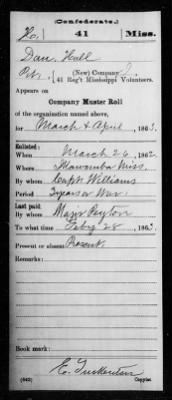 (Confederate.)
H. 41 Miss.
Dan. Hall
Pvt. (New) Company I,
41 Reg't Mississippi Volunteers.
Appears on
Company Muster Roll
of the organization named above,
for March & April, 1863.
Enlisted:
When March 26, 1862.
Where Itawamba Miss.
By whom Capt. Williams
Period 3 years or War.
Last paid:
By whom Major Peyton
To what time Feby 28, 1863.
Present or absent Present.
Remarks:
Book mark:
(642) Copyist.